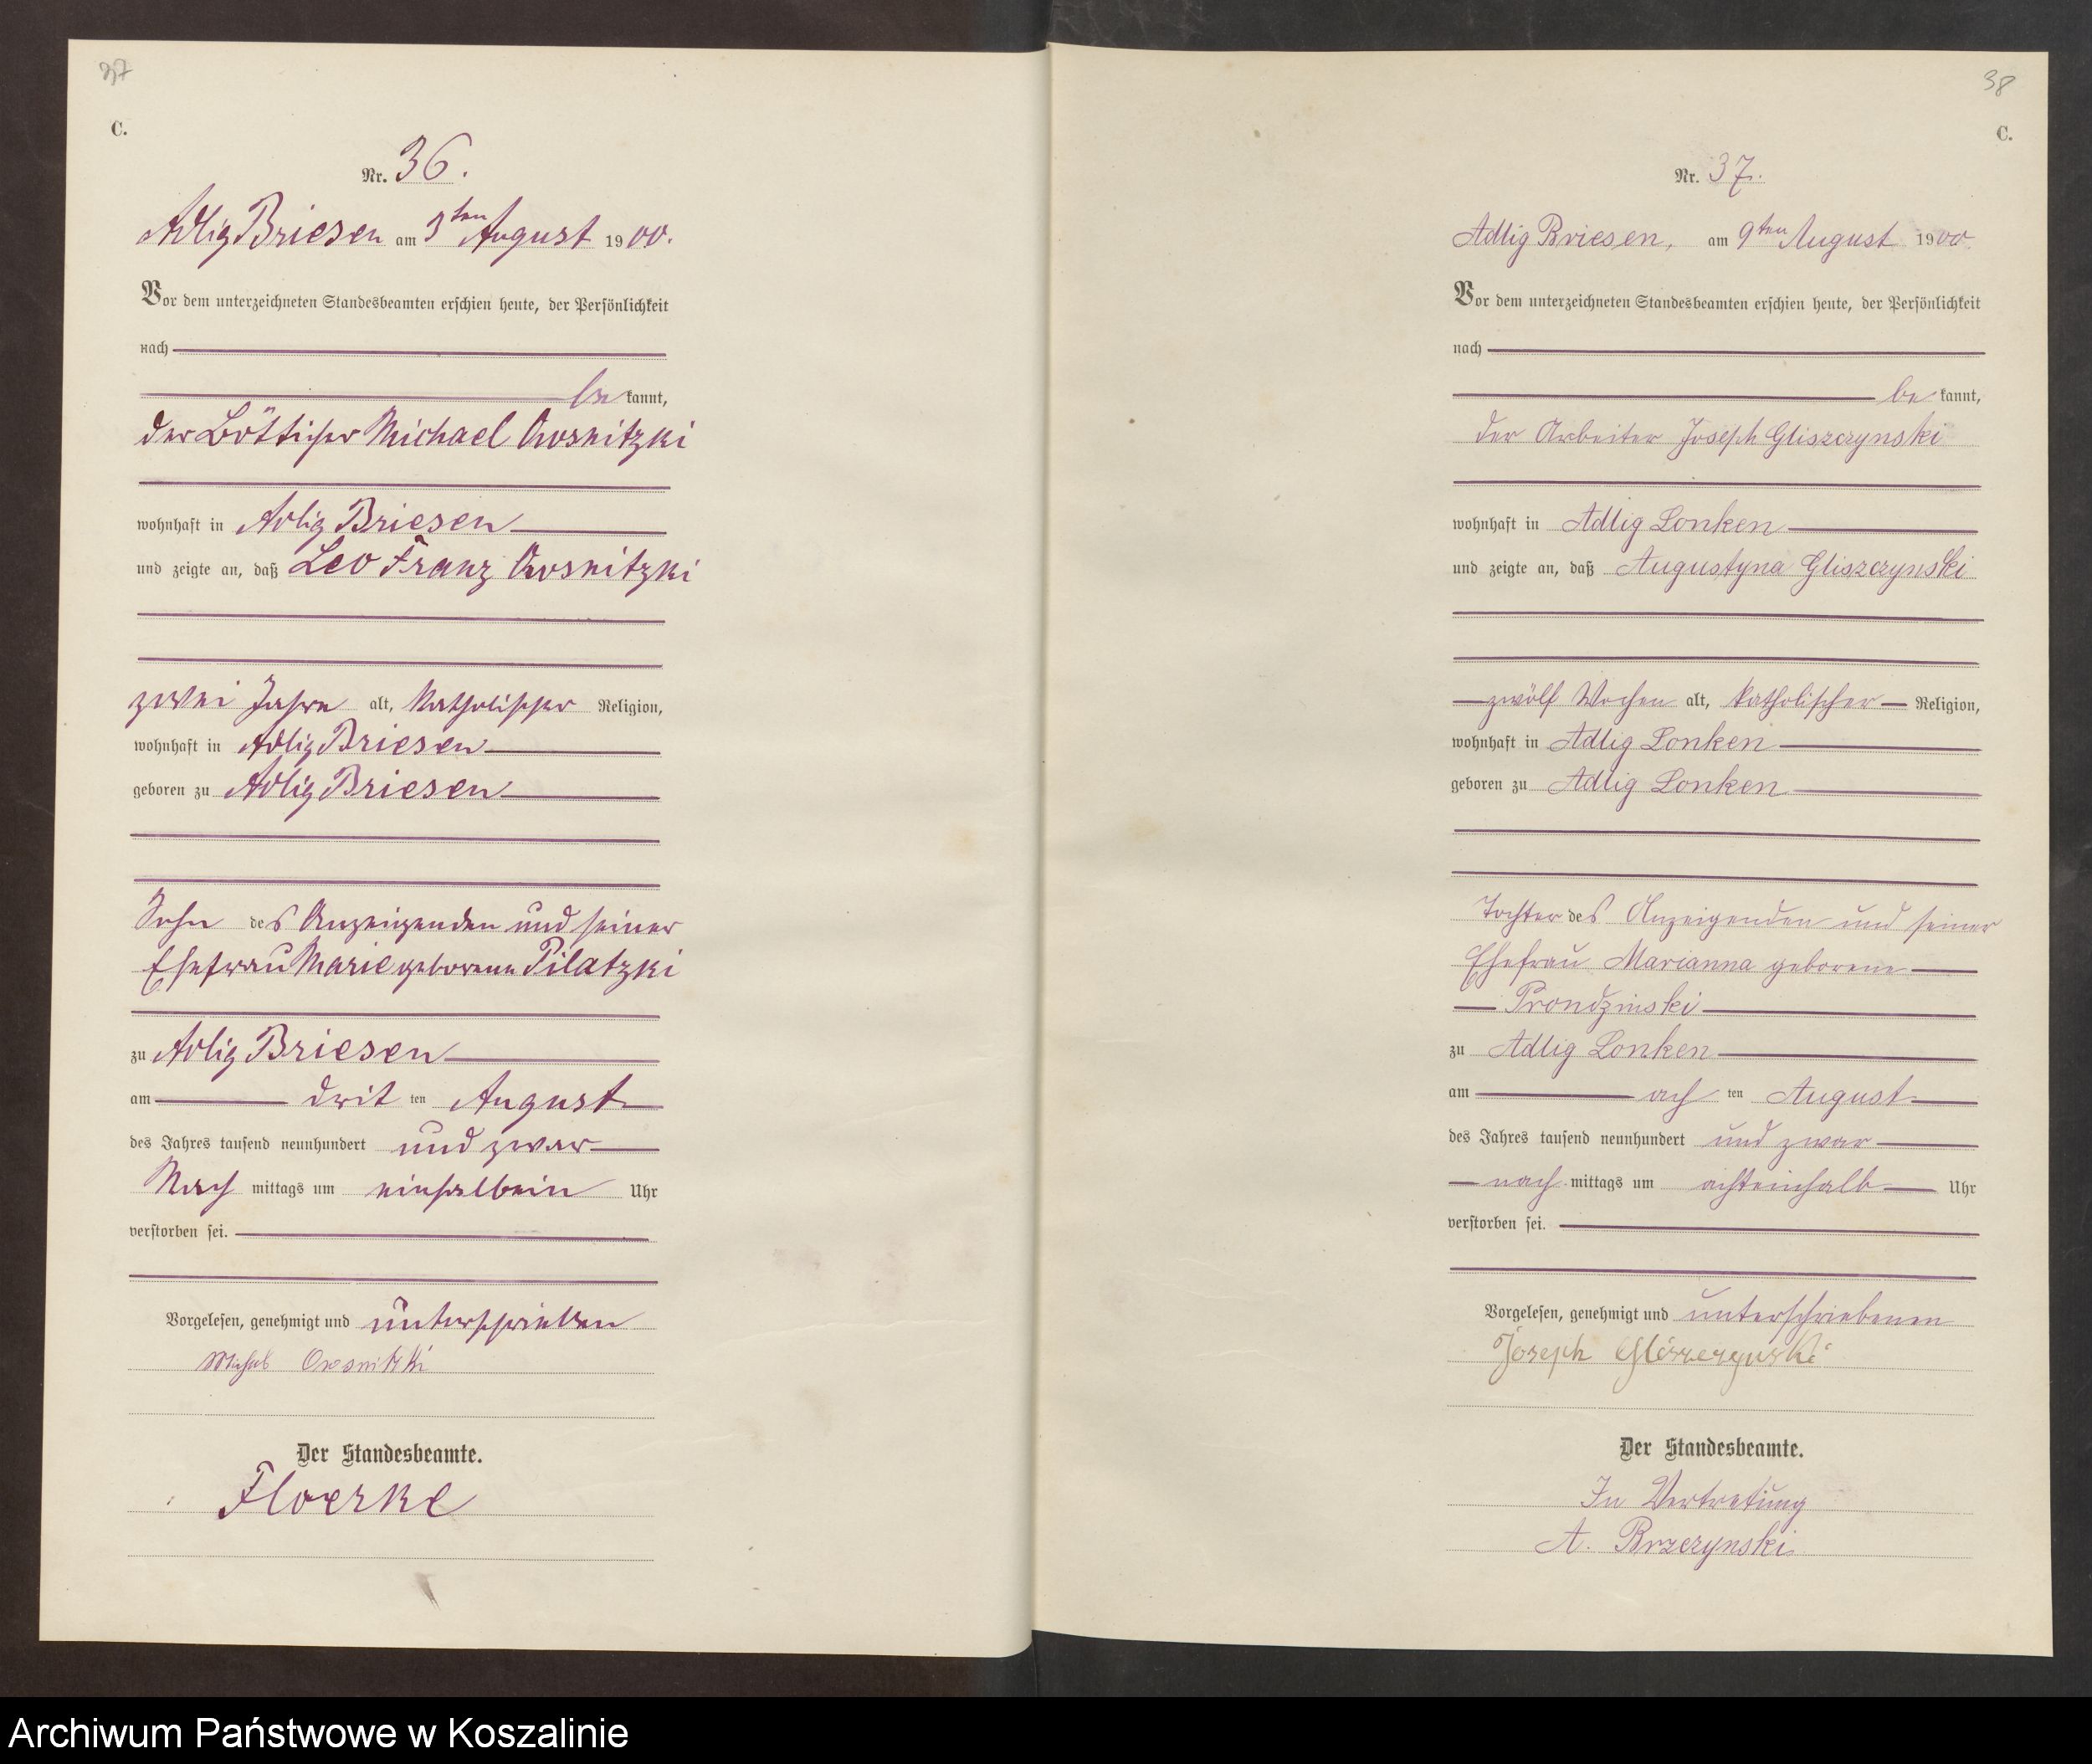 37
C.
Nr. 36.
Adlig Briesen am 3ten August 1900.
Vor dem unterzeichneten Standesbeamten erschien heute, der Persönlichkeit
nach
be kannt,
der Bötticher Michael Orosnitzki
wohnhaft in Adlig Briesen
und zeigte an, daß Leo Franz Orosnitzki
zwei Jahre alt, katholischer Religion,
wohnhaft in Adlig Briesen
geboren zu Adlig Briesen
Sohn des Anzeigenden und seiner
Ehefrau Marie geborenen Pilatzki
zu Adlig Briesen
am drit ten August
des Jahres tausend neunhundert und zwar
Nach mittags um einhalbein Uhr
verstorben sei.
Vorgelesen, genehmigt und unterschrieben
Orosnitzki
Der Standesbeamte.
Floerke
38
C.
Nr. 37.
Adlig Briesen, am 9ten August 1900.
Vor dem unterzeichneten Standesbeamten erschien heute, der Persönlichkeit
nach
be kannt,
der Arbeiter Joseph Gliszczynski
wohnhaft in Adlig Lonken
und zeigte an, daß Augustyna Gliszczynski
zwölf Wochen alt, katholischer Religion,
wohnhaft in Adlig Lonken
geboren zu Adlig Lonken
Tochter des Anzeigenden und seiner
Ehefrau Marianna geborene
Prondzinski
zu Adlig Lonken
am ach ten August
des Jahres tausend neunhundert und zwar
nach mittags um achteinhalb Uhr
verstorben sei.
Vorgelesen, genehmigt und unterschriebenen
Joseph Gliszczynski
Der Standesbeamte.
In Vertretung
A. Brzezynski
Archiwum Państwowe w Koszalinie